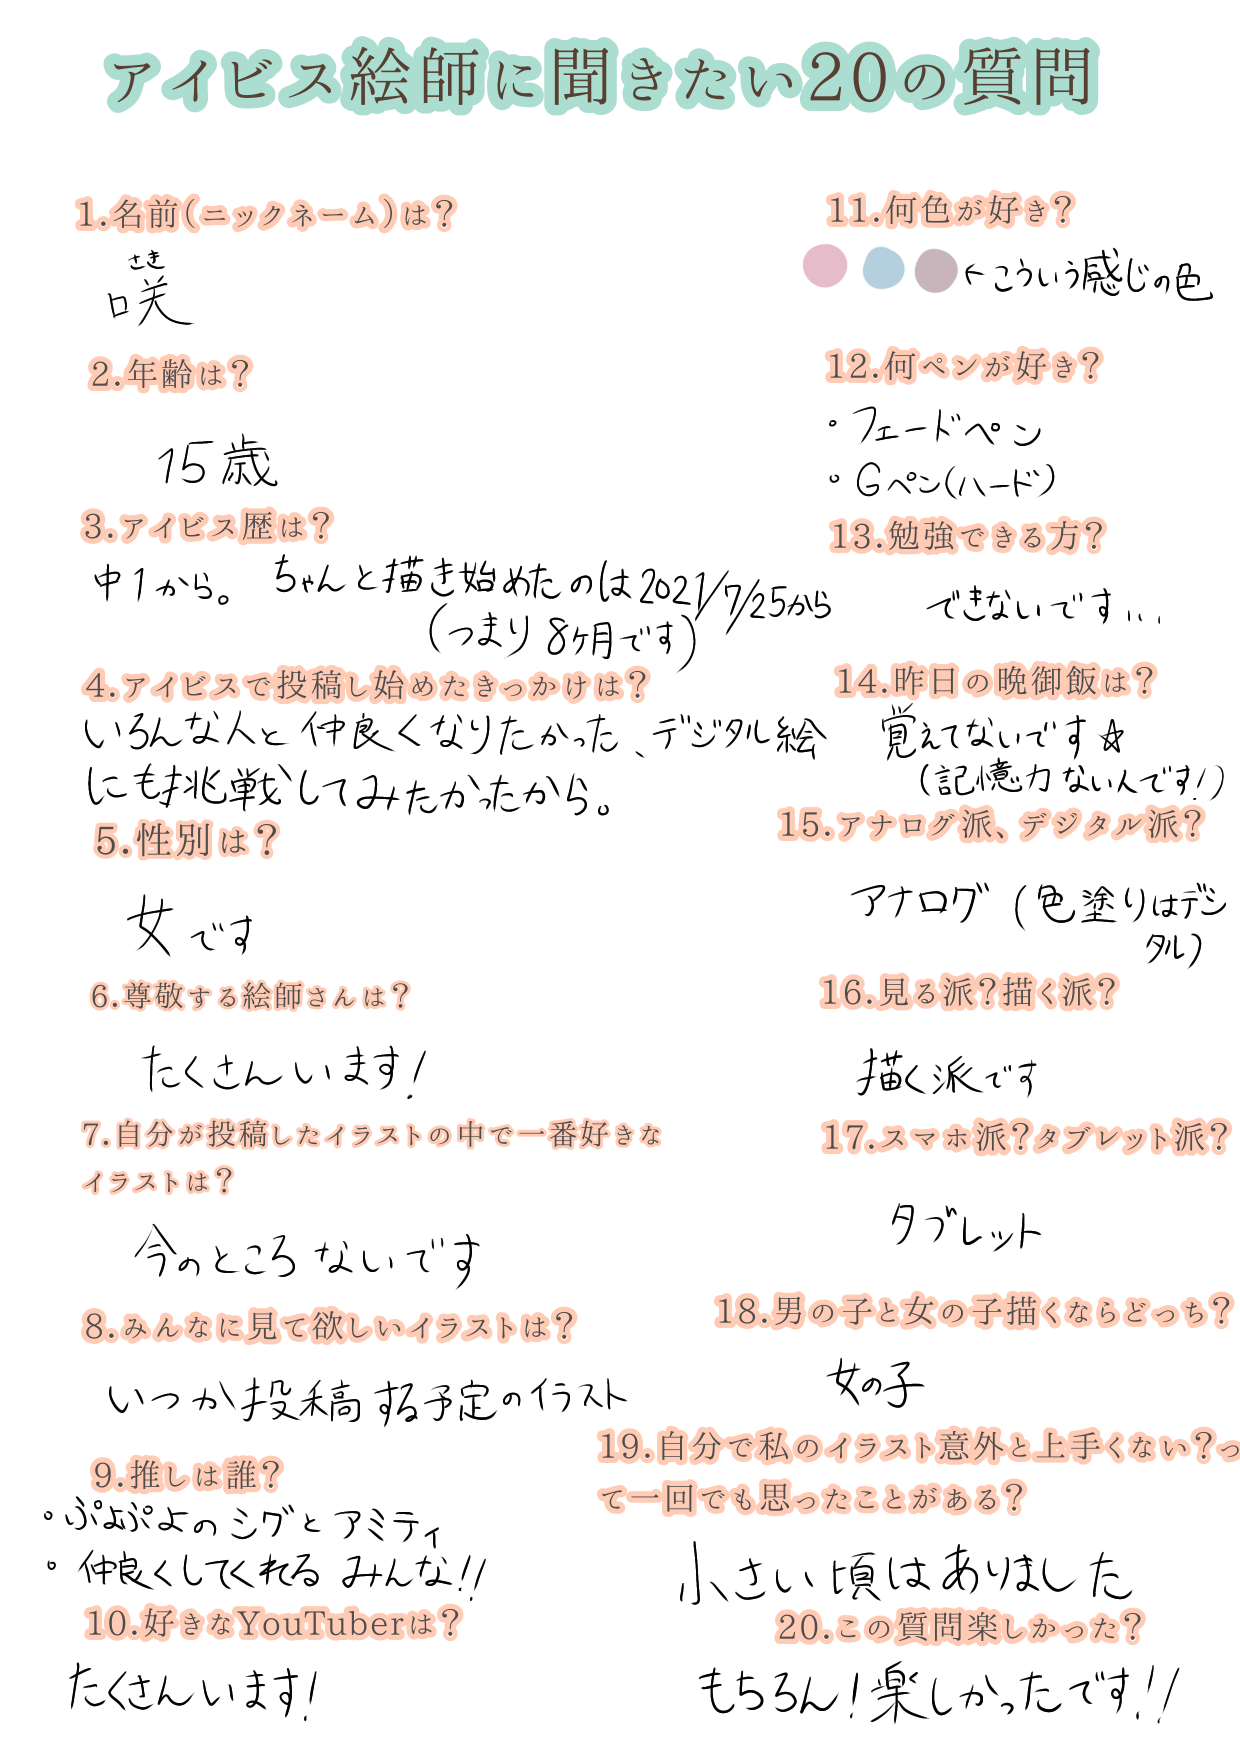 アイビス絵師に聞きたい20の質問
1.名前(ニックネーム)は?
さき
咲
2.年齢は?
15歳
3.アイビス歴は?
中1から。 ちゃんと描き始めたのは2021/7/25から
(つまり8ヶ月です)
4.アイビスで投稿し始めたきっかけは?
いろんな人と仲良くなりたかった、デジタル絵
にも挑戦してみたかったから。
5.性別は?
女です
6.尊敬する絵師さんは?
たくさんいます!
7.自分が投稿したイラストの中で一番好きな
イラストは?
今のところないです
8.みんなに見て欲しいイラストは?
いつか投稿する予定のイラスト
9.推しは誰?
・ぷよぷよのシグとアミティ
・仲良くしてくれるみんな!!
10.好きなYouTuberは?
たくさんいます!
11.何色が好き?
←こういう感じの色
12.何ペンが好き?
・フェードペン
・Gペン(ハード)
13.勉強できる方?
できないです...
14.昨日の晩御飯は?
覚えてないです☆
(記憶力ないんです!)
15.アナログ派、デジタル派?
アナログ(色塗りはデジ
タル)
16.見る派?描く派?
描く派です
17.スマホ派?タブレット派?
タブレット
18.男の子と女の子描くならどっち?
女の子
19.自分で私のイラスト意外と上手くない?っ
て一回でも思ったことがある?
小さい頃はありました
20.この質問楽しかった?
もちろん!楽しかったです!!